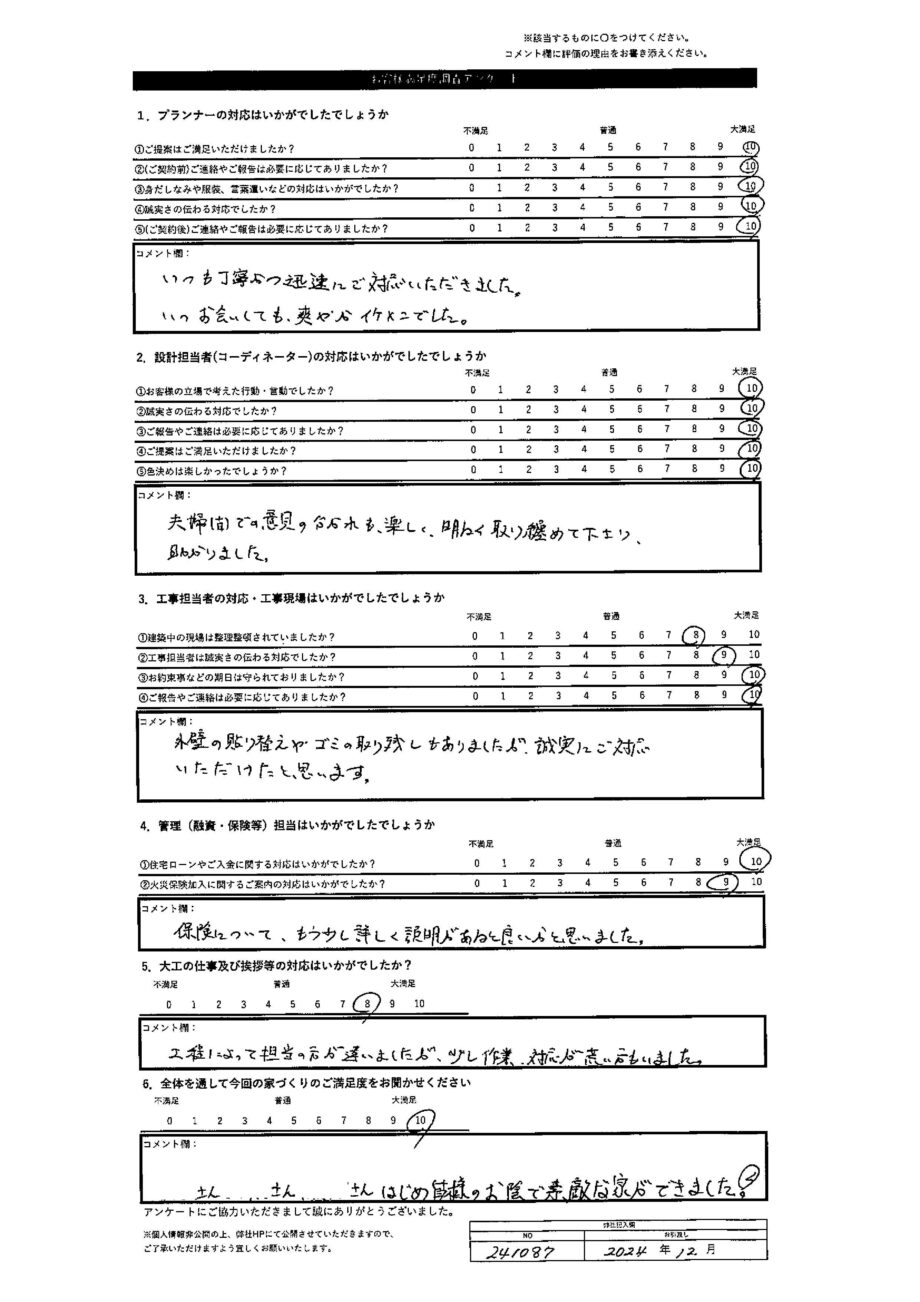 ※該当するものに〇をつけてください。
コメント欄に評価の理由をお書き添えください。
お客様満足度調査アンケート
1．プランナーの対応はいかがでしたでしょうか
不満足 普通 大満足
①ご提案はご満足いただけましたか？ 0 1 2 3 4 5 6 7 8 9 10
②(ご契約前)ご連絡やご報告は必要に応じてありましたか？ 0 1 2 3 4 5 6 7 8 9 10
③身だしなみや服装、言葉遣いなどの対応はいかがでしたか？ 0 1 2 3 4 5 6 7 8 9 10
④誠実さの伝わる対応でしたか？ 0 1 2 3 4 5 6 7 8 9 10
⑤(ご契約後)ご連絡やご報告は必要に応じてありましたか？ 0 1 2 3 4 5 6 7 8 9 10
コメント欄：
いつも丁寧かつ迅速にご対応いただきました。
いつお会いしても、爽やかイケメンでした。
2．設計担当者(コーディネーター)の対応はいかがでしたでしょうか
不満足 普通 大満足
①お客様の立場で考えた行動・言動でしたか？ 0 1 2 3 4 5 6 7 8 9 10
②誠実さの伝わる対応でしたか？ 0 1 2 3 4 5 6 7 8 9 10
③ご報告やご連絡は必要に応じてありましたか？ 0 1 2 3 4 5 6 7 8 9 10
④ご提案はご満足いただけましたか？ 0 1 2 3 4 5 6 7 8 9 10
⑤色決めは楽しかったでしょうか？ 0 1 2 3 4 5 6 7 8 9 10
コメント欄：
夫婦間での意見の分かれも、楽しく、明るく取り纏めて下さり、
助かりました。
3．工事担当者の対応・工事現場はいかがでしたでしょうか
不満足 普通 大満足
①建築中の現場は整理整頓されていましたか？ 0 1 2 3 4 5 6 7 8 9 10
②工事担当者は誠実さの伝わる対応でしたか？ 0 1 2 3 4 5 6 7 8 9 10
③お約束事などの期日は守られておりましたか？ 0 1 2 3 4 5 6 7 8 9 10
④ご報告やご連絡は必要に応じてありましたか？ 0 1 2 3 4 5 6 7 8 9 10
コメント欄：
外壁の貼り替えやゴミの取り残しもありましたが、誠実にご対応
いただけたと思います。
4．管理（融資・保険等）担当はいかがでしたでしょうか
不満足 普通 大満足
①住宅ローンやご入金に関する対応はいかがでしたか？ 0 1 2 3 4 5 6 7 8 9 10
②火災保険加入に関するご案内の対応はいかがでしたか？ 0 1 2 3 4 5 6 7 8 9 10
コメント欄：
保険について、もう少し詳しく説明があると良いかと思いました。
5．大工の仕事及び挨拶等の対応はいかがでしたか？
不満足 普通 大満足
0 1 2 3 4 5 6 7 8 9 10
コメント欄：
工程によって担当の方が違いましたが、少し作業、対応が荒い方もいました。
6．全体を通して今回の家づくりのご満足度をお聞かせください
不満足 普通 大満足
0 1 2 3 4 5 6 7 8 9 10
コメント欄：
さん さん さんはじめ皆様のお陰で素敵な家ができました！
アンケートにご協力いただきまして誠にありがとうございました。
※個人情報非公開の上、弊社HPにて公開させていただきますので、
ご了承いただけますよう宜しくお願いいたします。
弊社記入欄
NO お引渡し
241087 2024 年 12 月